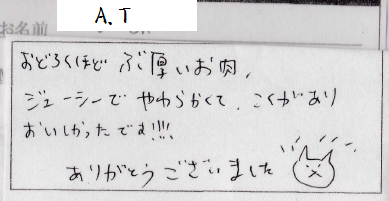 A.T
お名前
おどろくほど ぶ厚いお肉、
ジューシーで やわらかくて、こくがあり
おいしかったです!!!!
ありがとうございました